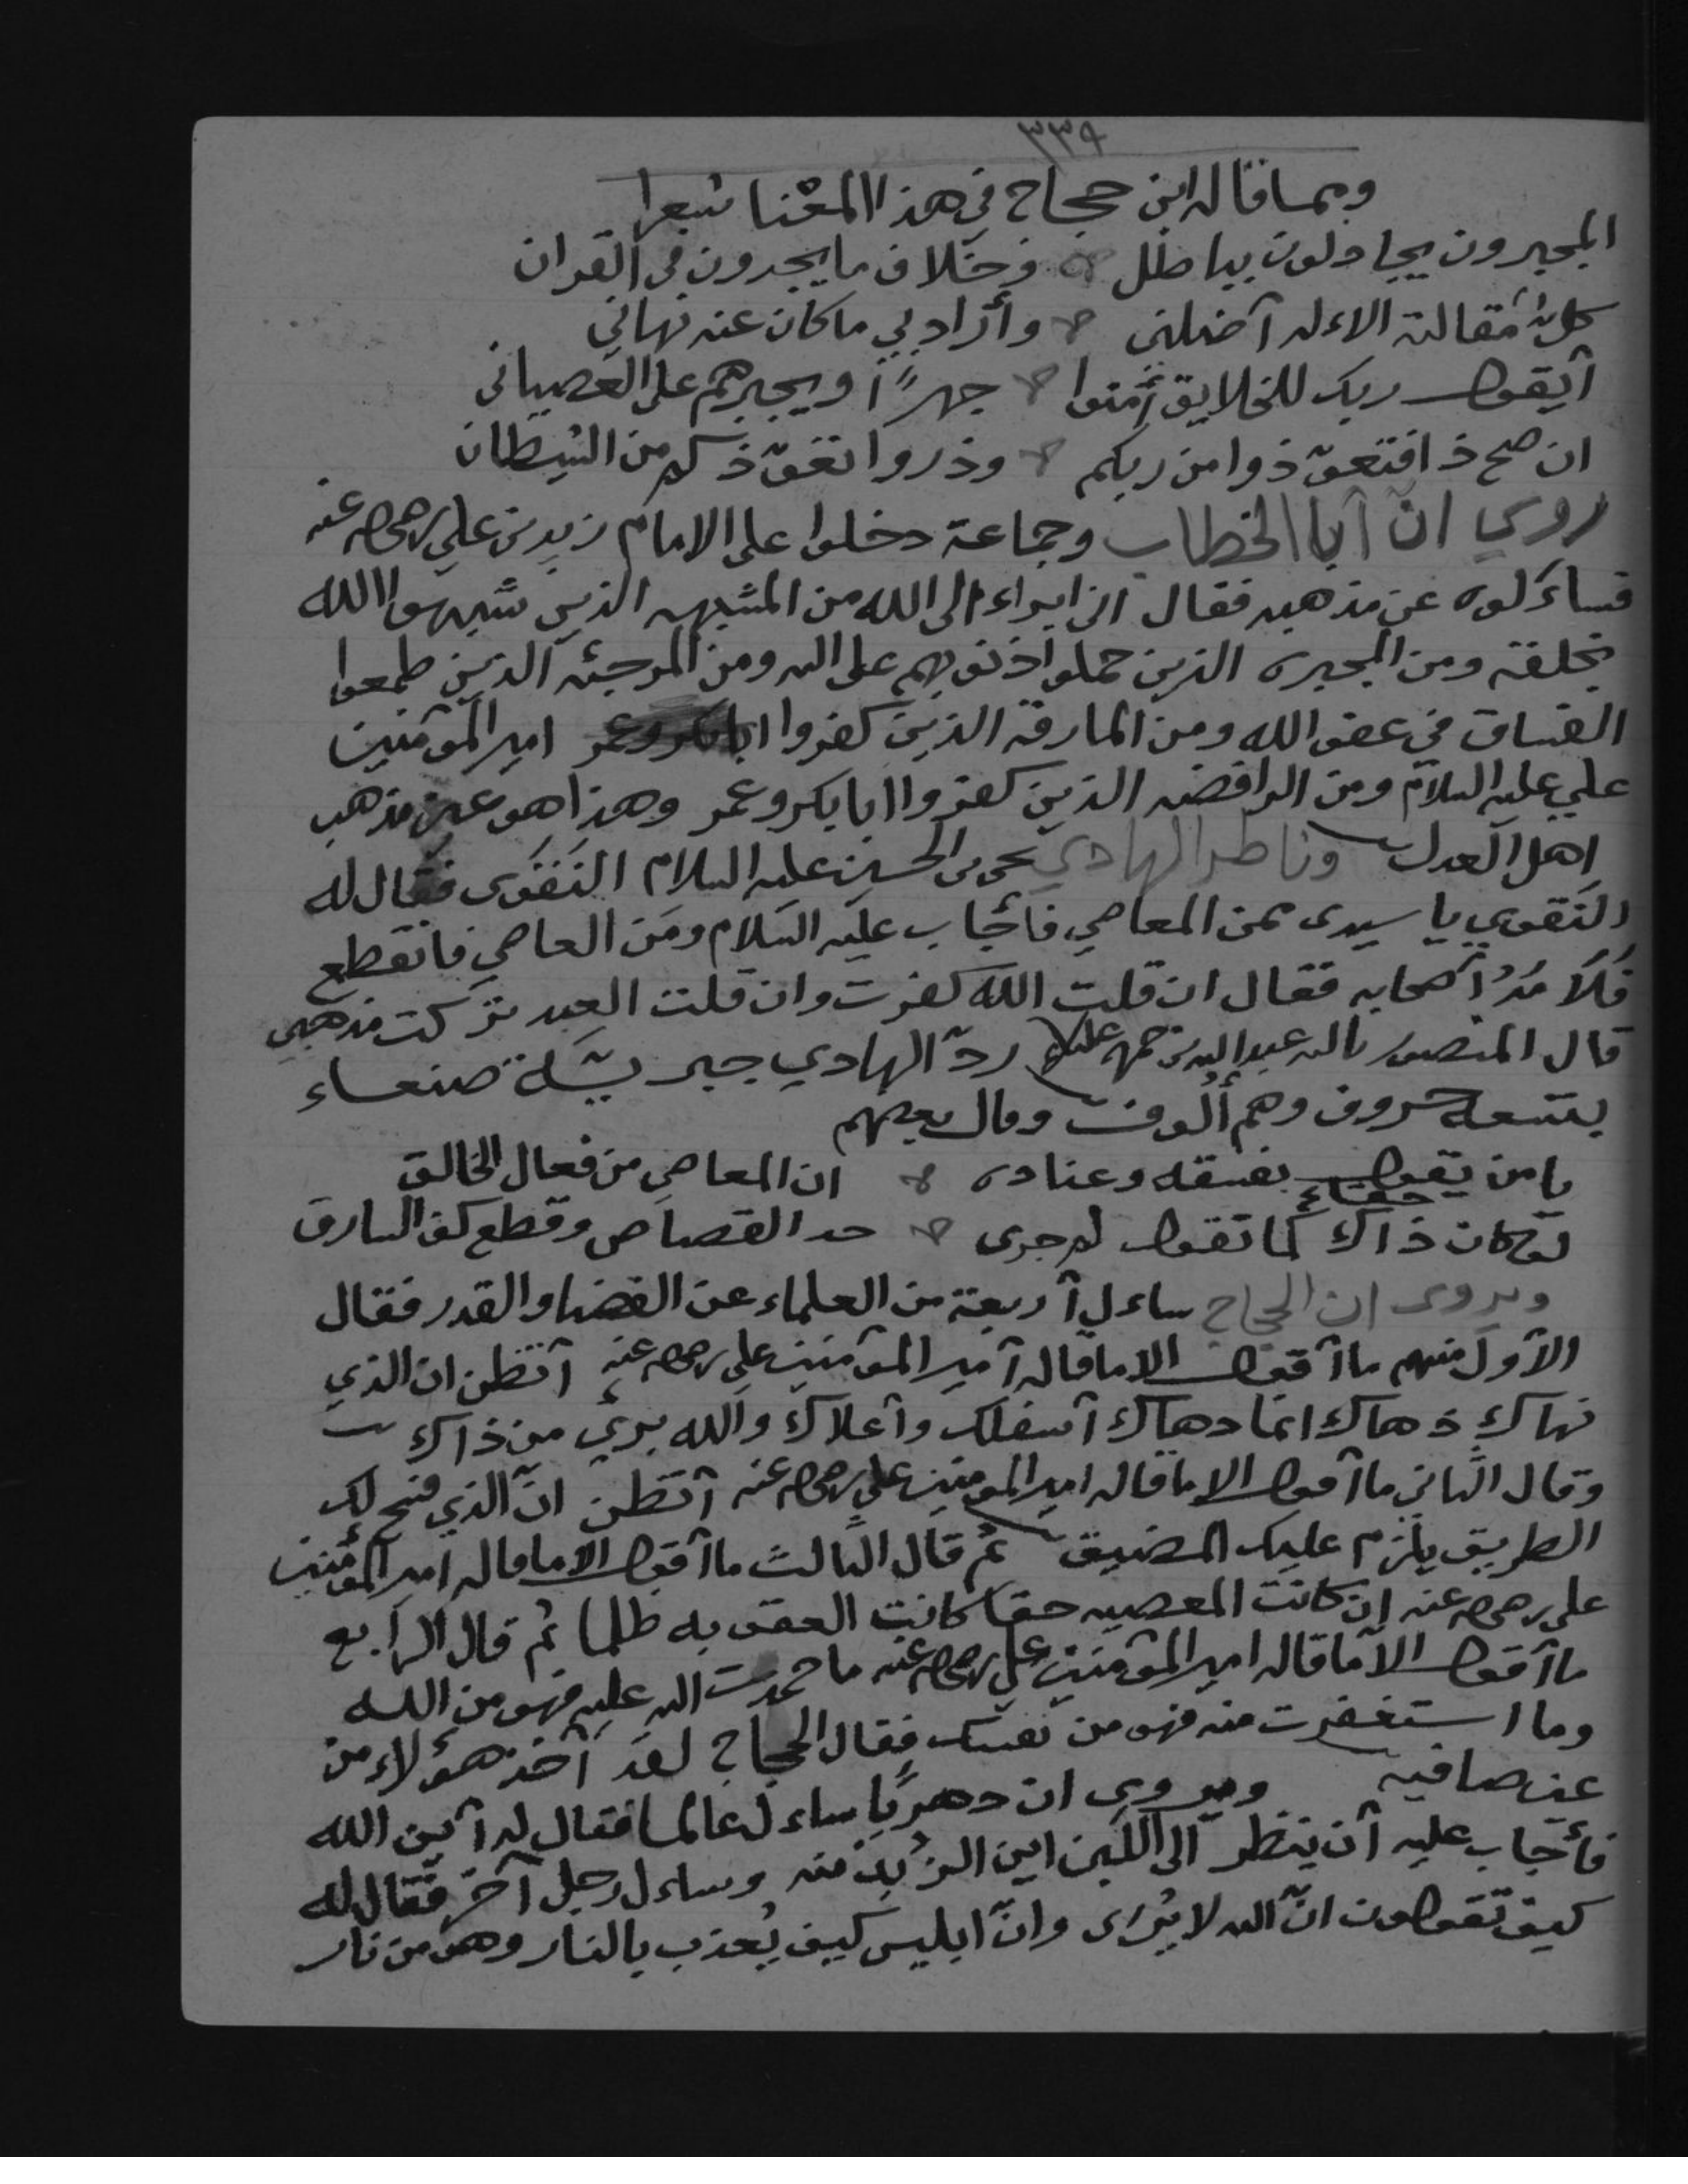 ٣٣٩
ومما قاله ابن حجاج في هذا المعنا شعرا
المجبرون يجادلون بباطل ۞ وخلاف ما يجدون في القران
كل مقالته الاله آضلني ۞ وأراد بي ما كان عنه نهاني
آيقول ربك للخلايق آمنوا ۞ جهرًا ويجبرهم على العصياني
ان صح ذا فتعوّذوا من ربكم ۞ وذروا تعوّذكم من الشيطان
روي انّ آبا الخطاب وجماعة دخلوا على الامام زيد بن علي رضي الله عنه
فساءلوه عن مذهبه فقال اني ابراء الى الله من المشبهه الذين شبهوا الله
بخلقه ومن المجبره الذين حملوا ذنوبهم على الله ومن المرجئه الذين طمعوا
الفساق في عفو الله ومن المارقة الذين كفروا امير المؤمنين
علي عليه السلام ومن الرافضه الذين كفروا ابا بكر وعمر وهذا هو عين مذهب
اهل العدل وناظر الهادي يحيى بن الحسين عليه السلام النَقَوى فقال له
النقوي يا سيدى ممن المعاصي فأجاب عليه السلام ومَن العاصي فانقطع
فَلَامَهُ آصحابه فقال ان قلت الله كفرت وان قلت العبد تركت مذهبي
قال المنصور بالله عبد الله بن حمزه عليلا ردّ الهادي جبريّة صنعاء
بتسعه حروف وهم ألوف وقال بعضهم
يا من يقول بفسقه وعناده ۞ ان المعاصي من فعال الخالق
لو كان ذاك حقاً كما تقول لم جرى ۞ حد القصاص وقطع كف السارق
ويروى ان الحجاج ساءل آربعة من العلماء عن القضا والقدر فقال
الآول منهم ما آقول الا ما قاله آمير المؤمنين علي رضي الله عنه آتظن ان الذي
نهاك دهاك انما دهاك آسفلك وآعلاك والله بريء من ذاك
وقال الثاني ما آقول الا ما قاله امير المومنين علي رضي الله عنه آتظن انّ الذي فتح لك
الطريق يلزم عليك المضيق ثم قال الثالث ما آقول الا ما قاله امير المؤمنين
علي رضي الله عنه ان كانت المعصيه حقا كانت العقوبه ظلما ثم قال الرابع
ما آقول الا ما قاله امير المؤمنين علي رضي الله عنه ما حمدت الله عليه فهو من الله
وما استغفرت منه فهو من نفسك فقال الحجاج لقد آخذ هؤلاء من
عين صافيه ويروى ان دهريًا ساءل عالما فقال له آين الله
فأجاب عليه آن ينظر الى اللبن اين الزبد منه وساءل رجل آخر فقال له
كيف تقولون انّ الله لا يُرى وانّ ابليس كيف يُعذب بالنار وهو من نار